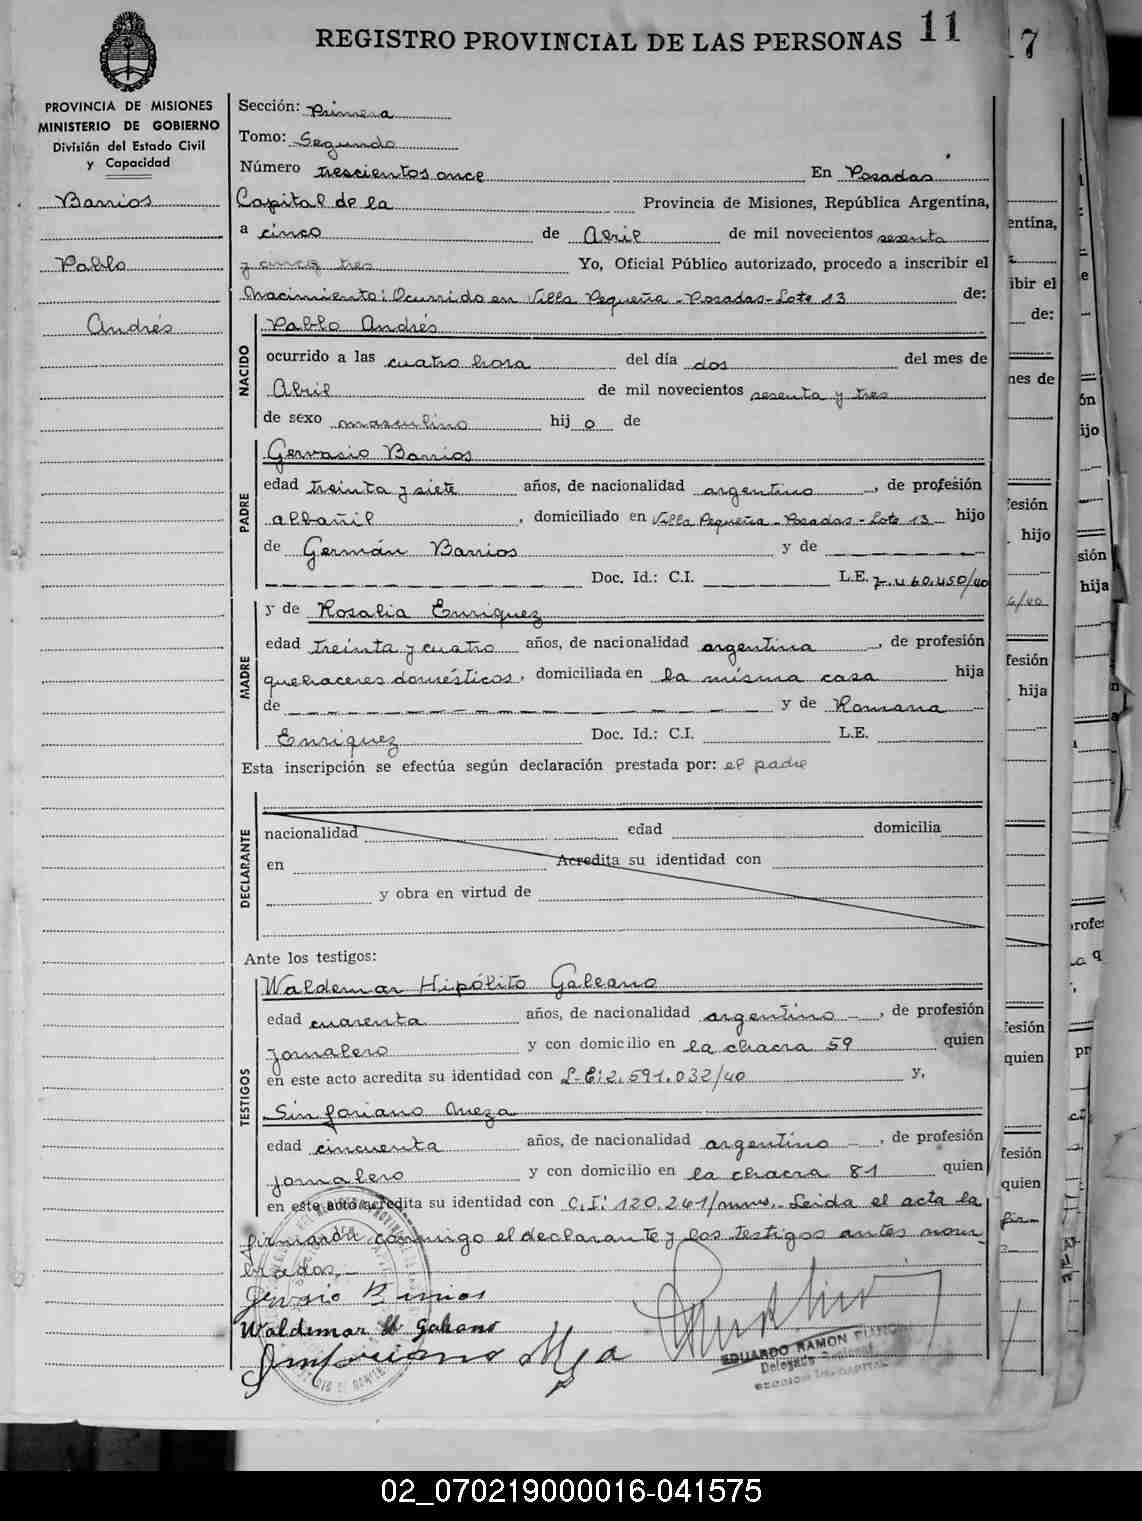 REGISTRO PROVINCIAL DE LAS PERSONAS 11
17
PROVINCIA DE MISIONES
MINISTERIO DE GOBIERNO
División del Estado Civil
y Capacidad
Barrios
Pablo
Andrés
Sección: Primera
Tomo: Segundo
Número trescientos once En Posadas
Capital de la Provincia de Misiones, República Argentina,
a cinco de Abril de mil novecientos sesenta
y tres Yo, Oficial Público autorizado, procedo a inscribir el
Nacimiento: Ocurrido en Villa Pequeña - Posadas - Lote 13 de:
NACIDO
Pablo Andrés
ocurrido a las cuatro hora del día dos del mes de
Abril de mil novecientos sesenta y tres
de sexo masculino hijo de
PADRE
Gervasio Barrios
edad treinta y siete años, de nacionalidad argentino, de profesión
albañil, domiciliado en Villa Pequeña - Posadas - Lote 13 hijo
de Germán Barrios y de
Doc. Id.: C.I. L.E. 7.460.450/40
MADRE
y de Rosalia Enriquez
edad treinta y cuatro años, de nacionalidad argentina, de profesión
quehaceres domésticos, domiciliada en la misma casa hija
de y de Romana
Enriquez Doc. Id.: C.I. L.E.
Esta inscripción se efectúa según declaración prestada por: el padre
DECLARANTE
nacionalidad edad domicilia
en Acredita su identidad con
y obra en virtud de
Ante los testigos:
TESTIGOS
Waldemar Hipólito Galeano
edad cuarenta años, de nacionalidad argentino, de profesión
jornalero y con domicilio en la chacra 59 quien
en este acto acredita su identidad con L.E: 2.591.032/40 y,
Sinforiano Meza
edad cincuenta años, de nacionalidad argentino, de profesión
jornalero y con domicilio en la chacra 81 quien
en este acto acredita su identidad con C.I: 120.241/mnes. Leida el acta la
firmarón conmigo el declarante y los testigos antes nom-
brados.
Gervasio Barrios
Waldemar H Galeano
Sinforiano Meza
EDUARDO RAMON
Delegado
02_070219000016-041575